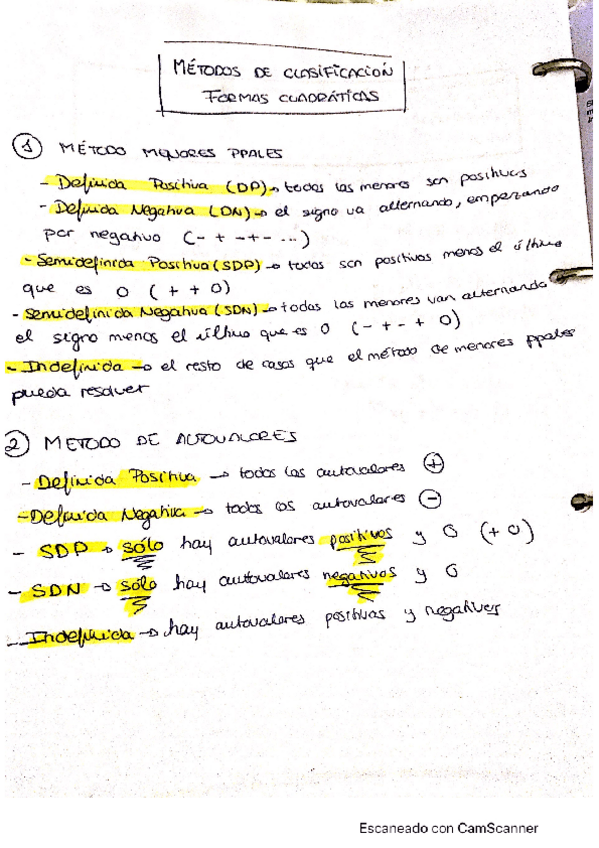 MÉTODOS DE CLASIFICACIÓN
FORMAS CUADRÁTICAS
1 MÉTODO MENORES PPALES
- Definida Positiva (DP) → todos los menores son positivos
- Definida Negativa (DN) → el signo va alternando, empezando
por negativo (- + - + - ...)
- Semidefinida Positiva (SDP) → todos son positivos menos el último
que es 0 (+ + 0)
- Semidefinida Negativa (SDN) → todos los menores van alternando
el signo menos el último que es 0 (- + - + 0)
- Indefinida → el resto de casos que el método de menores ppales
pueda resolver
2 METODO DE AUTOVALORES
- Definida Positiva → todos los autovalores +
- Definida Negativa → todos los autovalores -
- SDP → sólo hay autovalores positivos y 0 (+ 0)
- SDN → sólo hay autovalores negativos y 0
- Indefinida → hay autovalores positivos y negativos
Escaneado con CamScanner